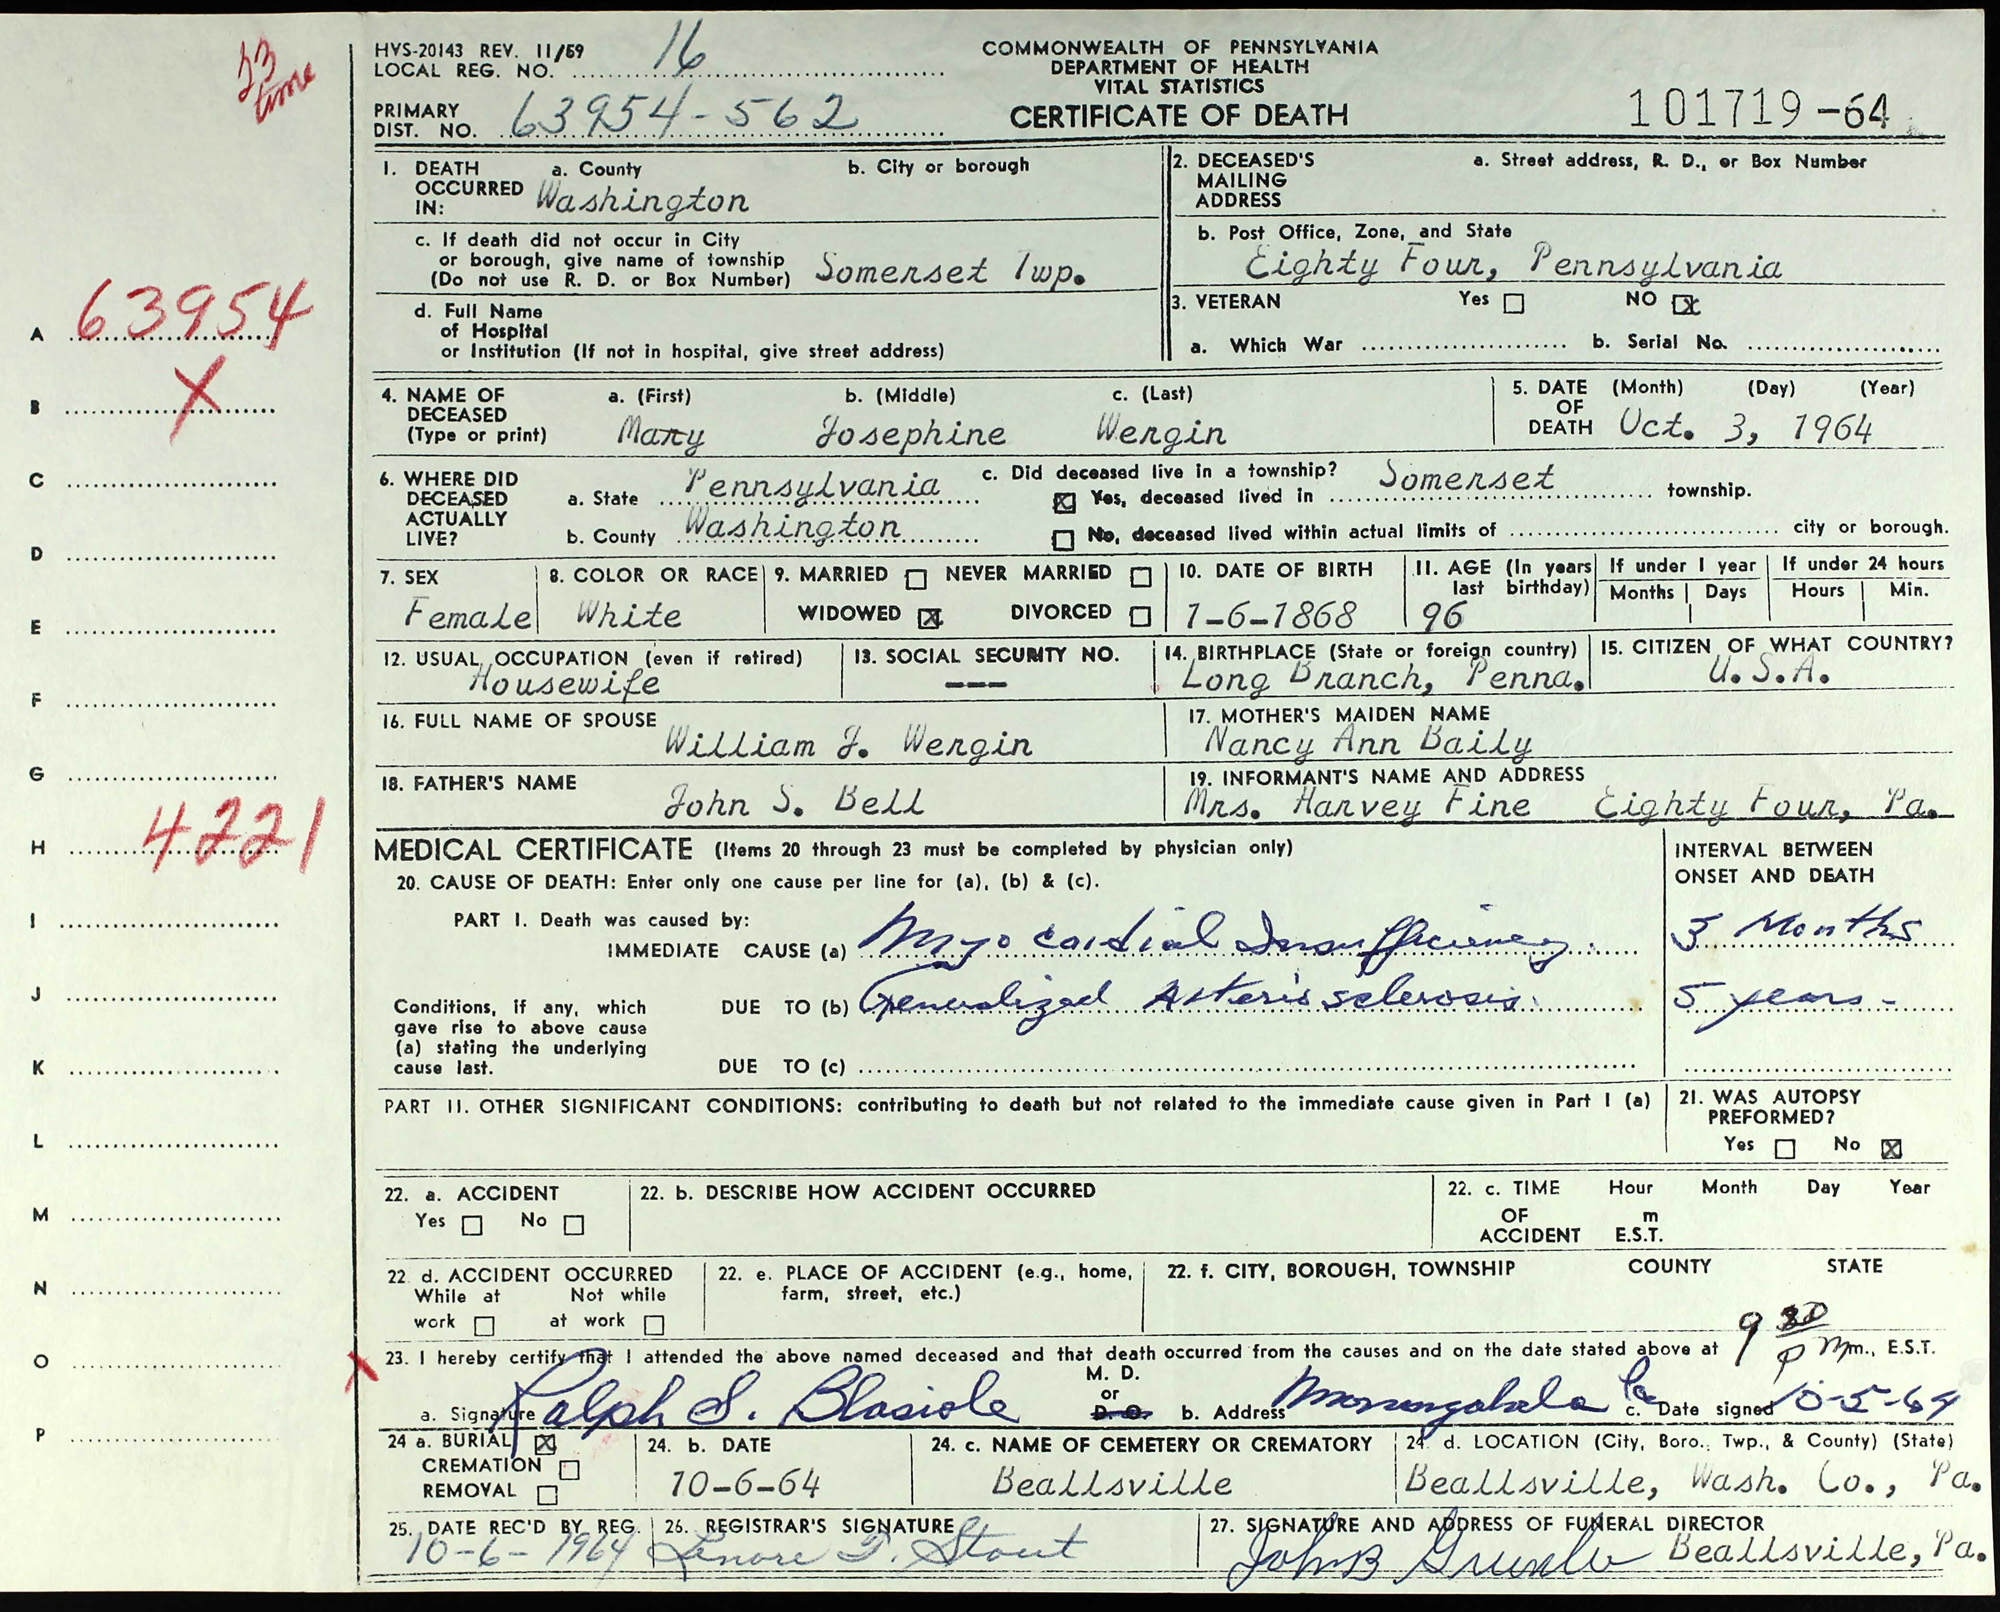 23
time
HVS-20143 REV. 11/59
LOCAL REG. NO. 16
COMMONWEALTH OF PENNSYLVANIA
DEPARTMENT OF HEALTH
VITAL STATISTICS
CERTIFICATE OF DEATH
PRIMARY
DIST. NO. 63954-562
101719-64
1. DEATH OCCURRED IN: a. County b. City or borough
Washington
c. If death did not occur in City
or borough, give name of township
(Do not use R. D. or Box Number) Somerset Twp.
d. Full Name
of Hospital
or Institution (If not in hospital, give street address)
2. DECEASED'S MAILING ADDRESS a. Street address, R. D., or Box Number
b. Post Office, Zone, and State
Eighty Four, Pennsylvania
3. VETERAN Yes NO x
a. Which War b. Serial No.
4. NAME OF DECEASED (Type or print) a. (First) b. (Middle) c. (Last)
Mary Josephine Wergin
5. DATE OF DEATH (Month) (Day) (Year)
Oct. 3, 1964
6. WHERE DID DECEASED ACTUALLY LIVE?
a. State Pennsylvania
b. County Washington
c. Did deceased live in a township?
x Yes, deceased lived in Somerset township.
No, deceased lived within actual limits of city or borough.
7. SEX
Female
8. COLOR OR RACE
White
9. MARRIED NEVER MARRIED
WIDOWED x DIVORCED
10. DATE OF BIRTH
1-6-1868
11. AGE (In years last birthday)
96
If under 1 year
Months Days
If under 24 hours
Hours Min.
12. USUAL OCCUPATION (even if retired)
Housewife
13. SOCIAL SECURITY NO.
---
14. BIRTHPLACE (State or foreign country)
Long Branch, Penna.
15. CITIZEN OF WHAT COUNTRY?
U.S.A.
16. FULL NAME OF SPOUSE
William J. Wergin
17. MOTHER'S MAIDEN NAME
Nancy Ann Baily
18. FATHER'S NAME
John S. Bell
19. INFORMANT'S NAME AND ADDRESS
Mrs. Harvey Fine Eighty Four, Pa.
MEDICAL CERTIFICATE (Items 20 through 23 must be completed by physician only)
INTERVAL BETWEEN
ONSET AND DEATH
20. CAUSE OF DEATH: Enter only one cause per line for (a), (b) & (c).
PART I. Death was caused by:
IMMEDIATE CAUSE (a) Myocardial Insufficiency 3 Months
Conditions, if any, which
gave rise to above cause
(a) stating the underlying
cause last.
DUE TO (b) Generalized Arteriosclerosis. 5 years-
DUE TO (c)
PART II. OTHER SIGNIFICANT CONDITIONS: contributing to death but not related to the immediate cause given in Part I (a)
21. WAS AUTOPSY
PREFORMED?
Yes No x
22. a. ACCIDENT
Yes No
22. b. DESCRIBE HOW ACCIDENT OCCURRED
22. c. TIME OF ACCIDENT Hour Month Day Year
m
E.S.T.
22 d. ACCIDENT OCCURRED
While at work Not while at work
22. e. PLACE OF ACCIDENT (e.g., home,
farm, street, etc.)
22. f. CITY, BOROUGH, TOWNSHIP COUNTY STATE
23. I hereby certify that I attended the above named deceased and that death occurred from the causes and on the date stated above at 9 30 P m., E.S.T.
a. Signature Ralph S. Blasiole M. D. or D. O. b. Address Monongahela Pa c. Date signed 10-5-64
24 a. BURIAL x
CREMATION
REMOVAL
24. b. DATE
10-6-64
24. c. NAME OF CEMETERY OR CREMATORY
Beallsville
24. d. LOCATION (City, Boro., Twp., & County) (State)
Beallsville, Wash. Co., Pa.
25. DATE REC'D BY REG.
10-6-1964
26. REGISTRAR'S SIGNATURE
Lenore T. Stout
27. SIGNATURE AND ADDRESS OF FUNERAL DIRECTOR
John B Beallsville, Pa.
A 63954
B X
C
D
E
F
G
H 4221
I
J
K
L
M
N
O
P
X